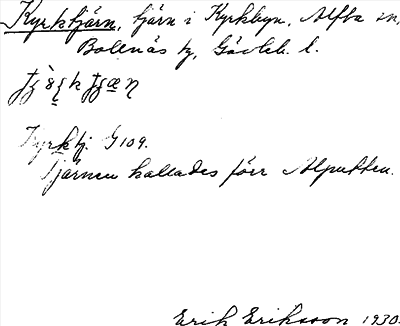 Kyrktjärn, tjärn i Kyrkbyn, Alfta sn,
Bollnäs tg, Gävleb. l.
Kyrktj. G109.
Tjärnen kallades förr Alputten.
Erik Eriksson 1930.